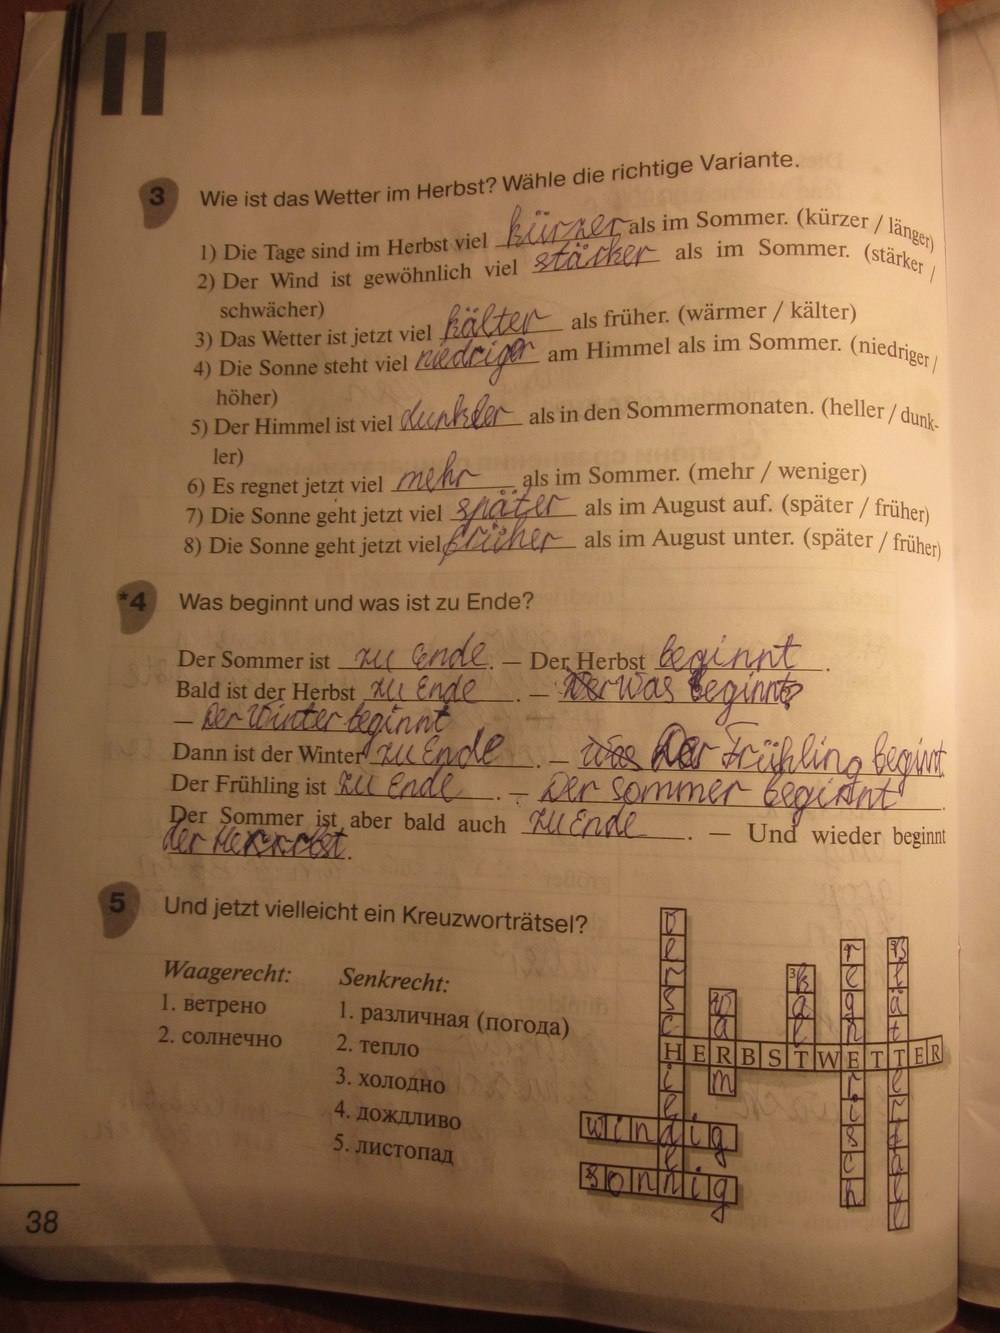 II
3 Wie ist das Wetter im Herbst? Wähle die richtige Variante.
1) Die Tage sind im Herbst viel kürzer als im Sommer. (kürzer / länger)
2) Der Wind ist gewöhnlich viel stärker als im Sommer. (stärker /
schwächer)
3) Das Wetter ist jetzt viel kälter als früher. (wärmer / kälter)
4) Die Sonne steht viel niedriger am Himmel als im Sommer. (niedriger /
höher)
5) Der Himmel ist viel dunkler als in den Sommermonaten. (heller / dunk-
ler)
6) Es regnet jetzt viel mehr als im Sommer. (mehr / weniger)
7) Die Sonne geht jetzt viel später als im August auf. (später / früher)
8) Die Sonne geht jetzt viel früher als im August unter. (später / früher)
*4 Was beginnt und was ist zu Ende?
Der Sommer ist zu Ende. — Der Herbst beginnt.
Bald ist der Herbst zu Ende. — Was beginnt?
— Der Winter beginnt
Dann ist der Winter zu Ende. — Der Frühling begint
Der Frühling ist zu Ende. — Der Sommer beginnt.
Der Sommer ist aber bald auch zu Ende. — Und wieder beginnt
der.
5 Und jetzt vielleicht ein Kreuzworträtsel?
Waagerecht:
1. ветрено
2. солнечно
Senkrecht:
1. различная (погода)
2. тепло
3. холодно
4. дождливо
5. листопад
HERBSTWETTER
verschieden
warm
3 kalt
regnerisch
Blätterfall
windig
sonnig
38